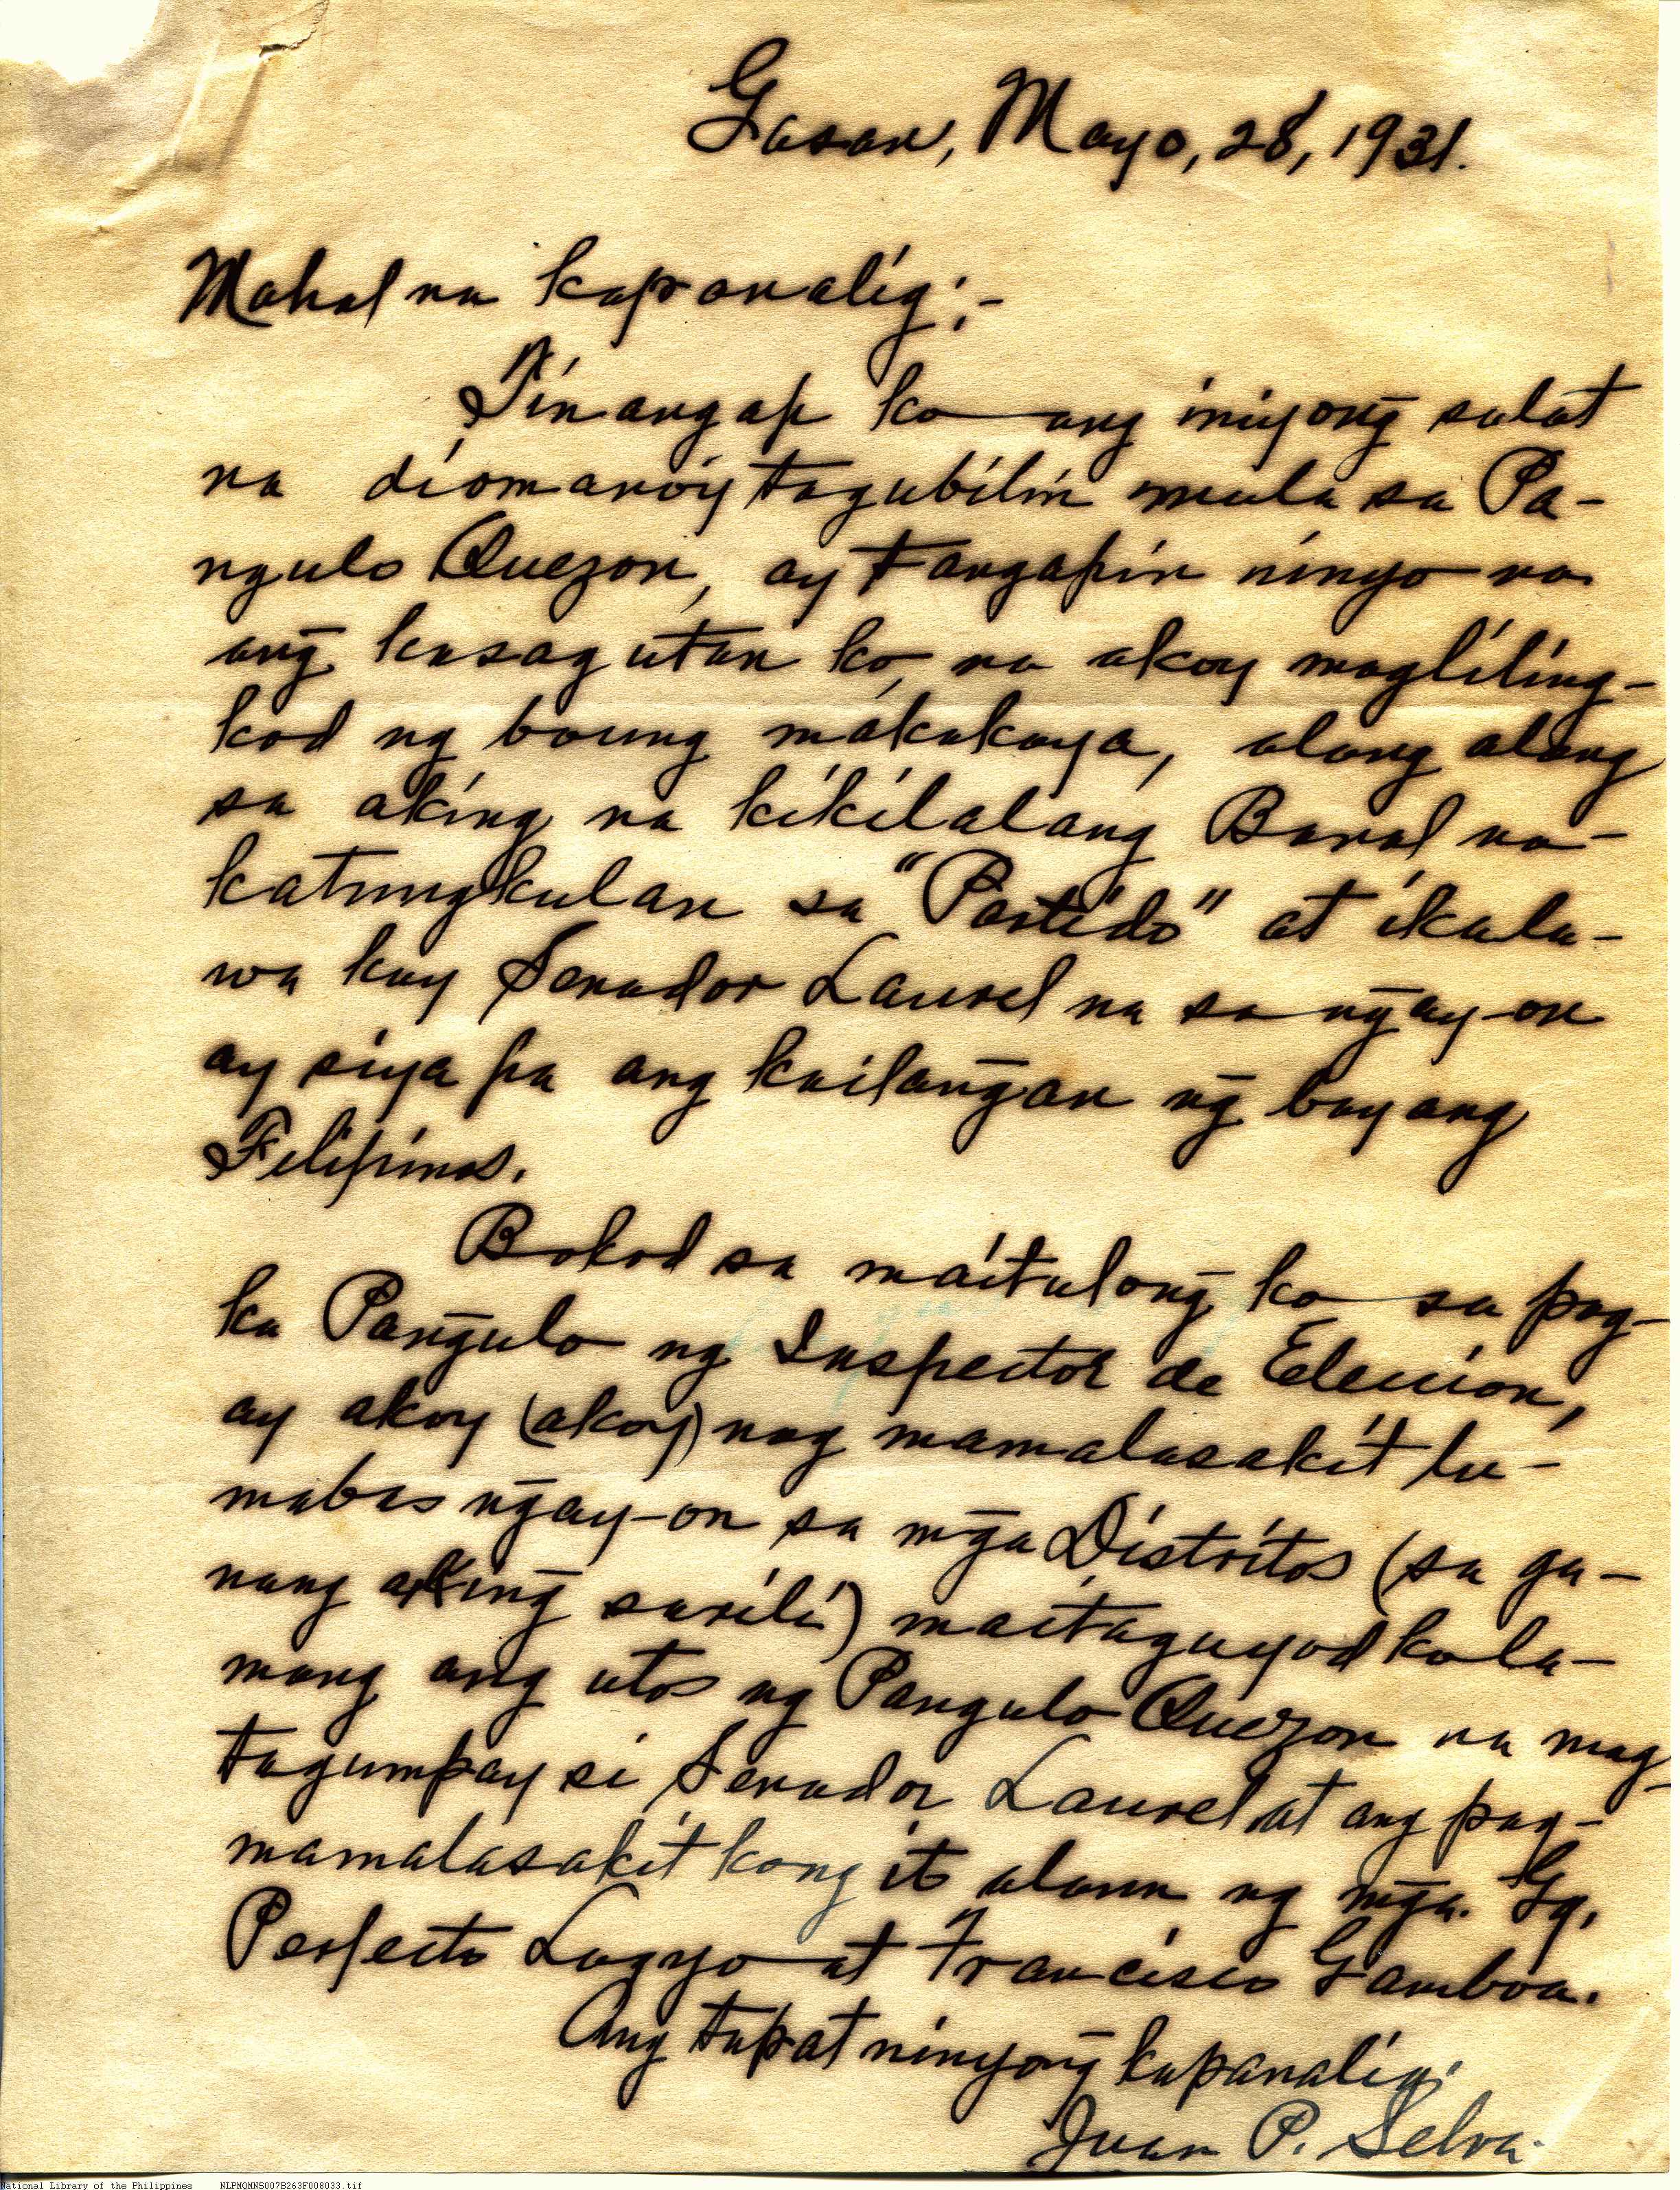 Gasan, Mayo, 28, 1931.
Mahal na kapanalig;-
Tinangap ko ang iniyong̃ sulat
na diomanoiy tagubilin mula sa Pa-
ngulo Quezon, ay tangapin ninyo na
ang̃ kasagutan ko, na akoy magliling-
kod ng boung makakaya, alang alang
sa aking na kikilalang Banal na-
katungkulan sa "Partido" at ikala-
wa kay Senador Laurel na sa ng̃ay-on
ay siya pa ang kailang̃an ng̃ bayang
Filipinas.
Bokod sa maitulong̃ ko sa pag-
ka Pang̃ulo ng Inspector de Eleccion,
ay akoy (akoy) nag mamalasakit lu-
mabas ng̃ay-on sa mg̃a Distritos (sa ga-
nang aking̃ sarili) maitaguyod kola-
mang ang utos ng Pangulo Quezon na mag-
tagumpay si Senador Laurel at ang pag-
mamalasakit kong it alam ng mg̃a. Gg.
Perfecto Lagyo at Francisco Gamboa.
Ang tapat ninyong̃ kapanalig.
Juan P. Selva.
National Library of the Philippines NLPMQMNS007B263F008033.tif